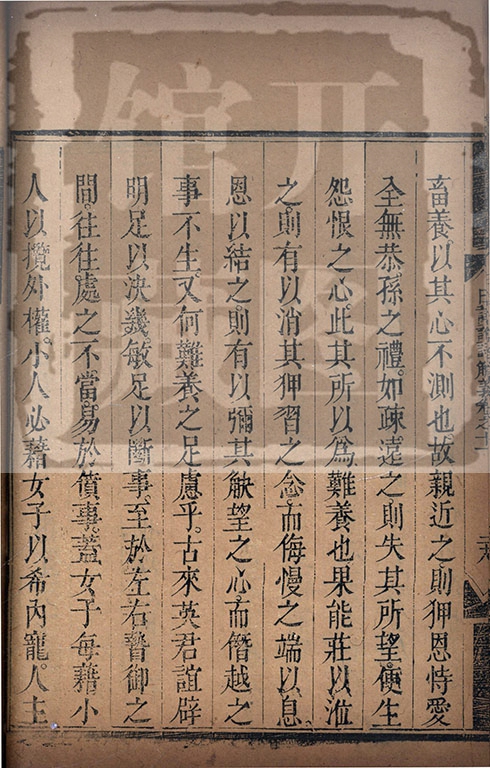 畜養以其心不測也故親近之則狎恩恃愛
全無恭孫之禮。如疎遠之則失其所望。便生
怨恨之心此其所以為難養也果能莊以涖
之則有以消其狎習之念。而侮慢之端以息。
恩以結之則有以彌其觖望之心而僭越之
事不生。又何難養之足慮乎。古來英君誼辟
明足以決幾。敏足以斷事。至於左右暬御之
間。往往處之不當。易於僨事。蓋女子每藉小
人以攬外權。小人必藉女子以希內寵。人主